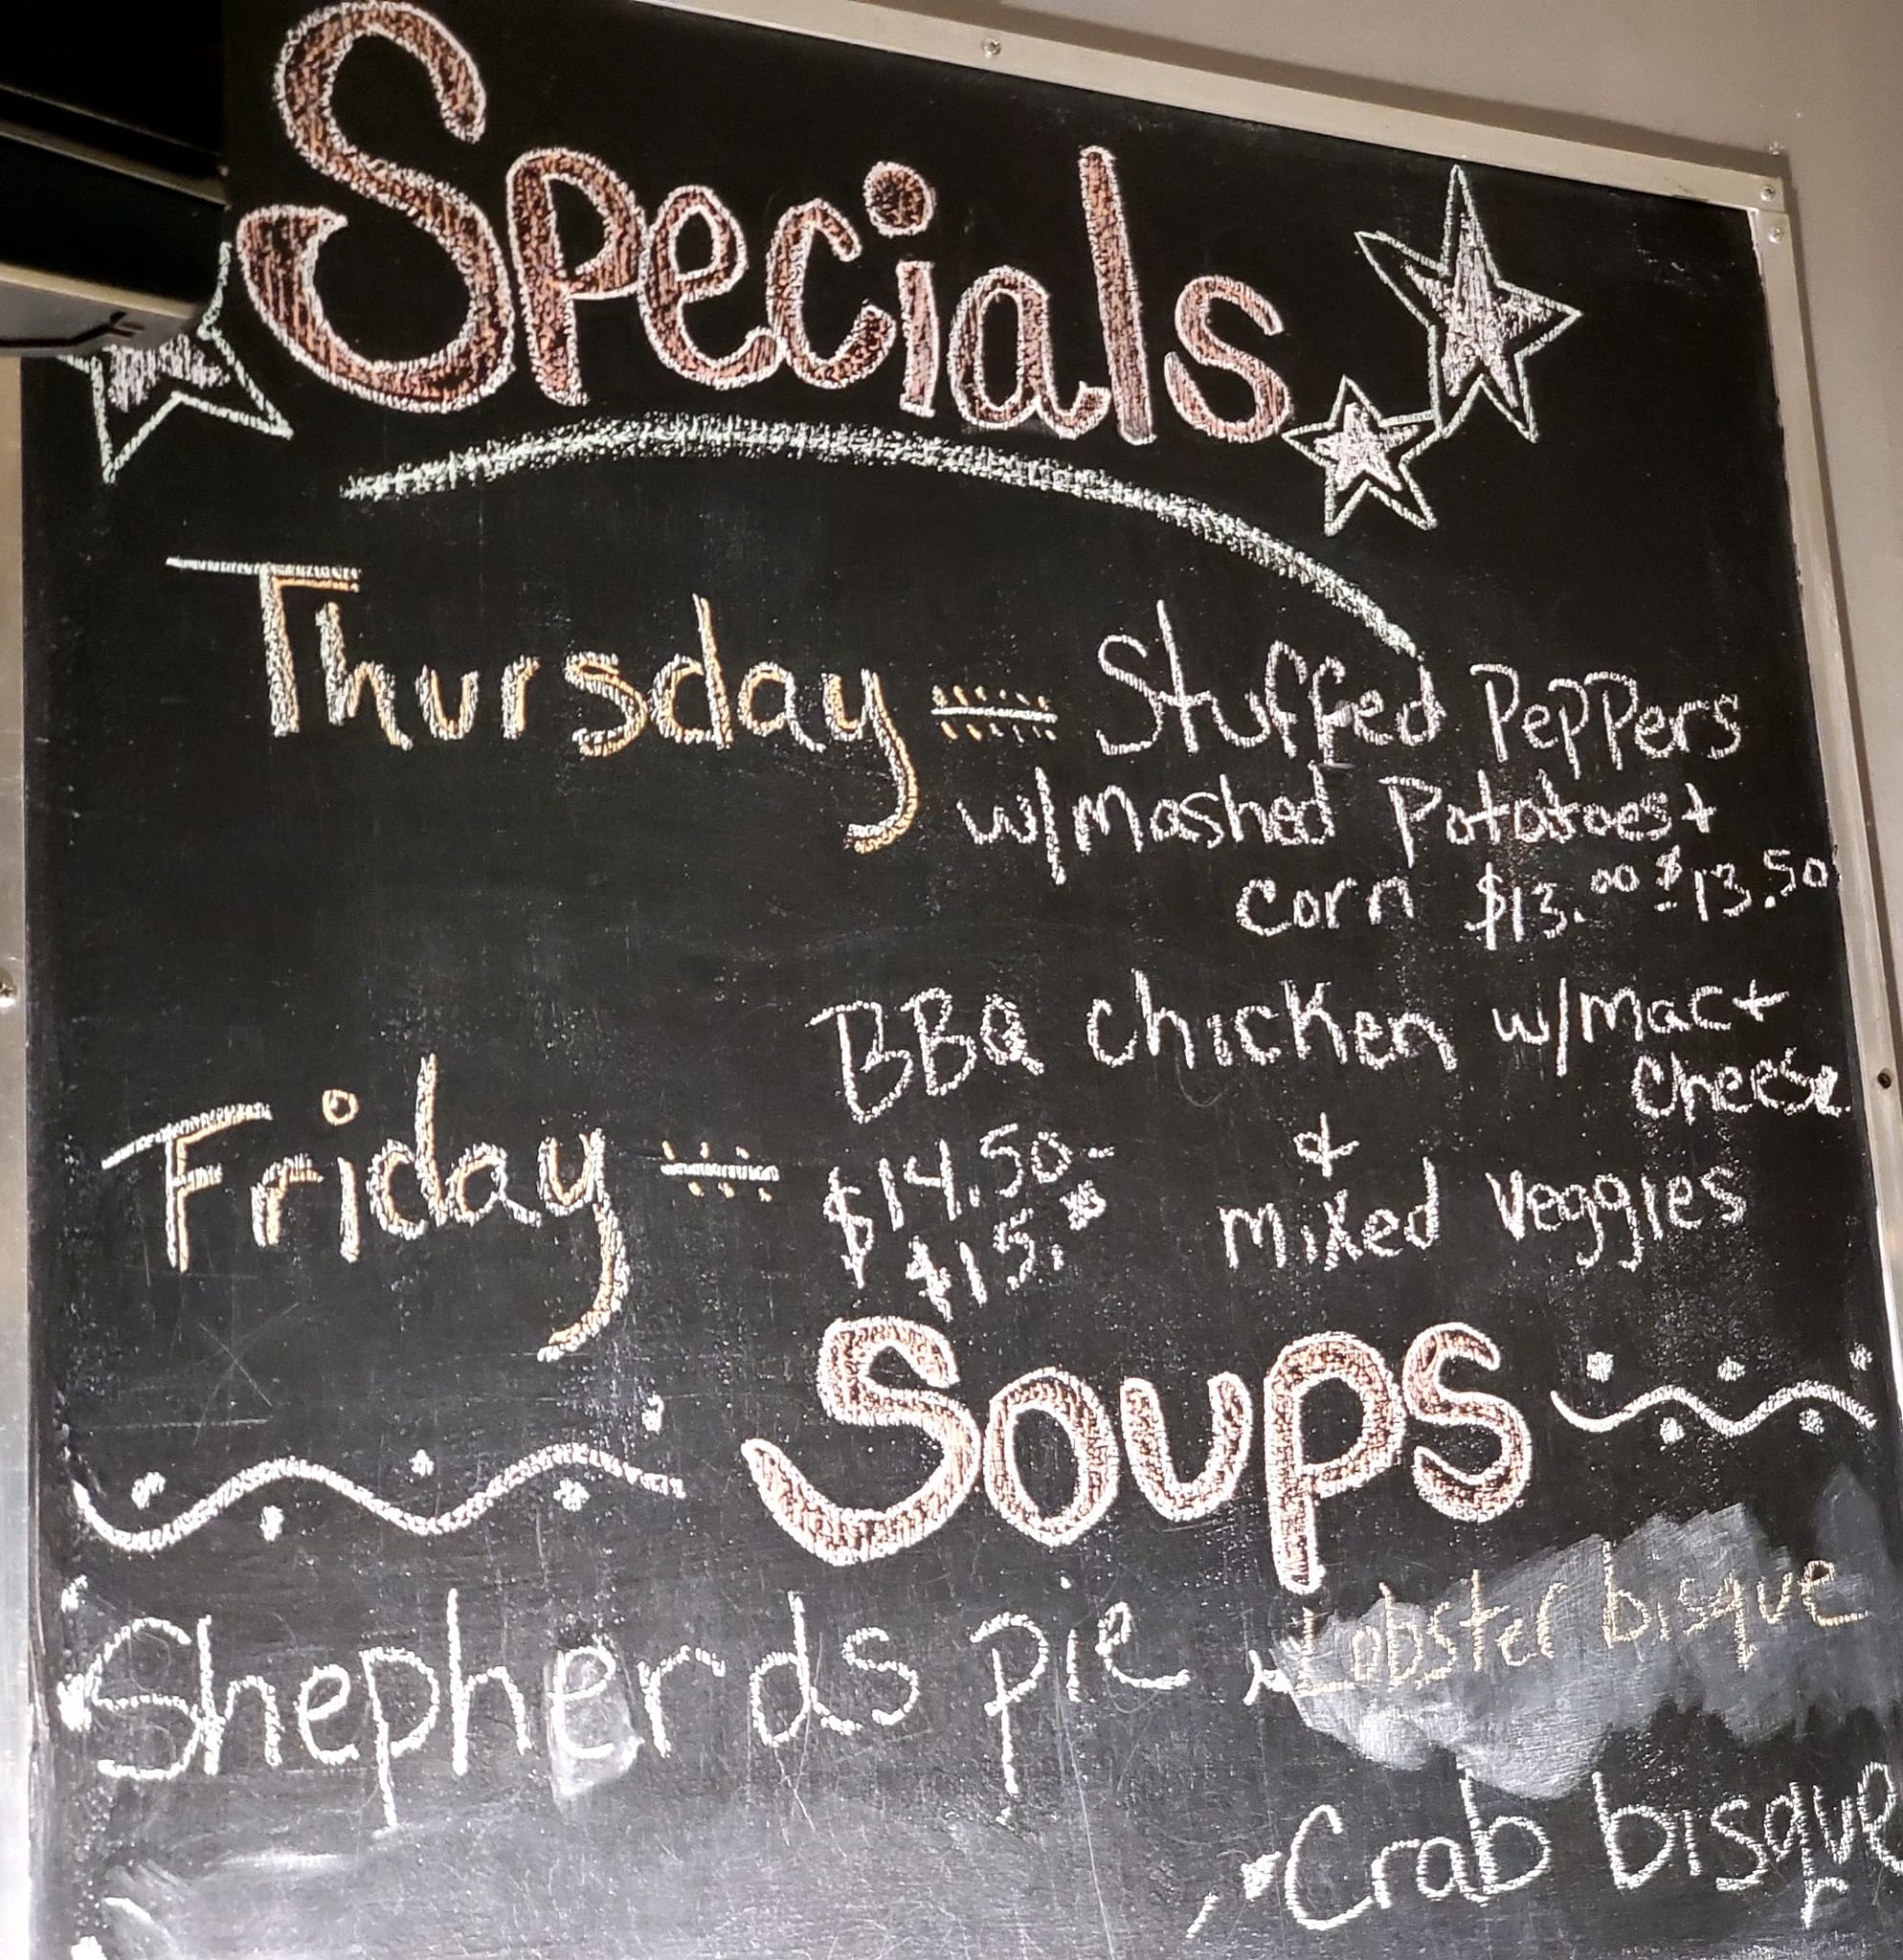 Specials
Thursday - Stuffed Peppers
w/Mashed Potatoes +
corn $13.00 - $13.50
BBQ chicken w/Mac +
cheese
Friday - $14.50 -
$15.00
&
mixed veggies
Soups
Shepherds pie
Lobster bisque
Crab bisque